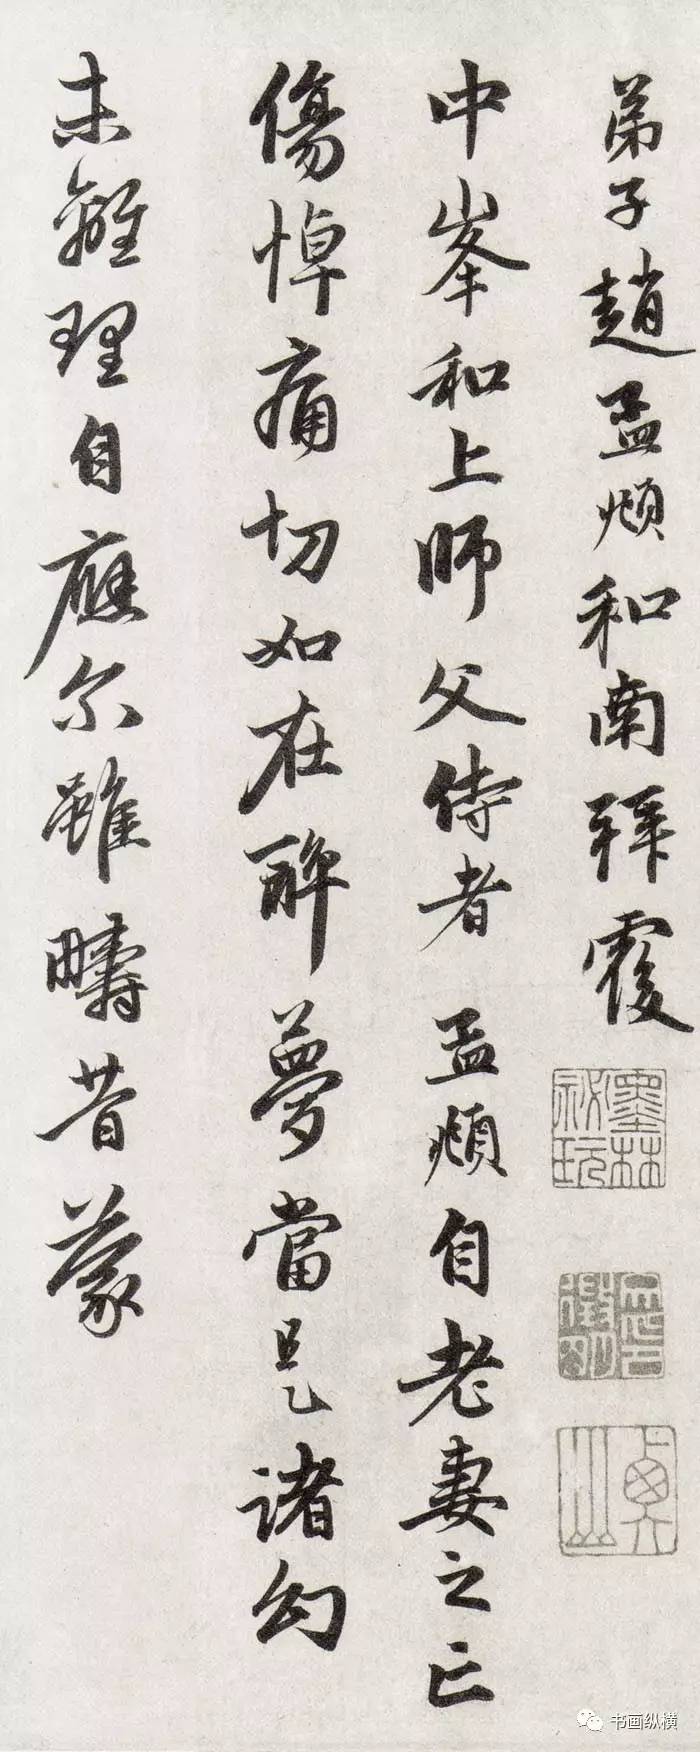 弟子趙孟頫和南拜覆
中峯和上師父侍者 孟頫自老妻之亡
傷悼痛切如在酔夢當是諸幻
未離理自應尔雖疇昔蒙
墨林祕玩
书画纵横